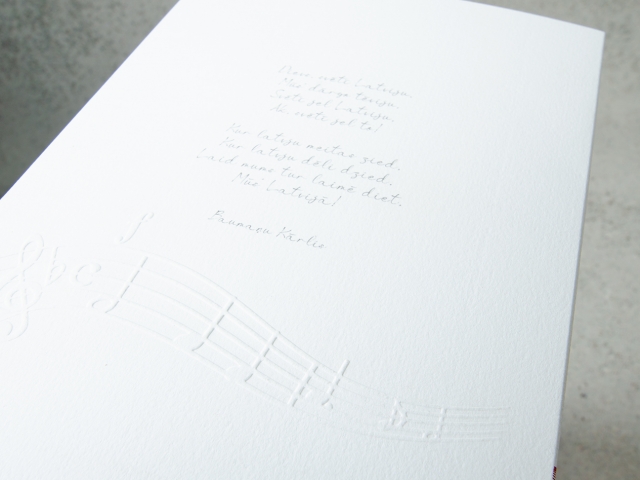 Dievs, svētī Latviju,
Mūs' dārgo tēviju,
Svētī jel Latviju,
Ak, svētī jel to!
Kur latvju meitas zied,
Kur latvju dēli dzied,
Laid mums tur laimē diet,
Mūs' Latvijā!
Baumaņu Kārlis